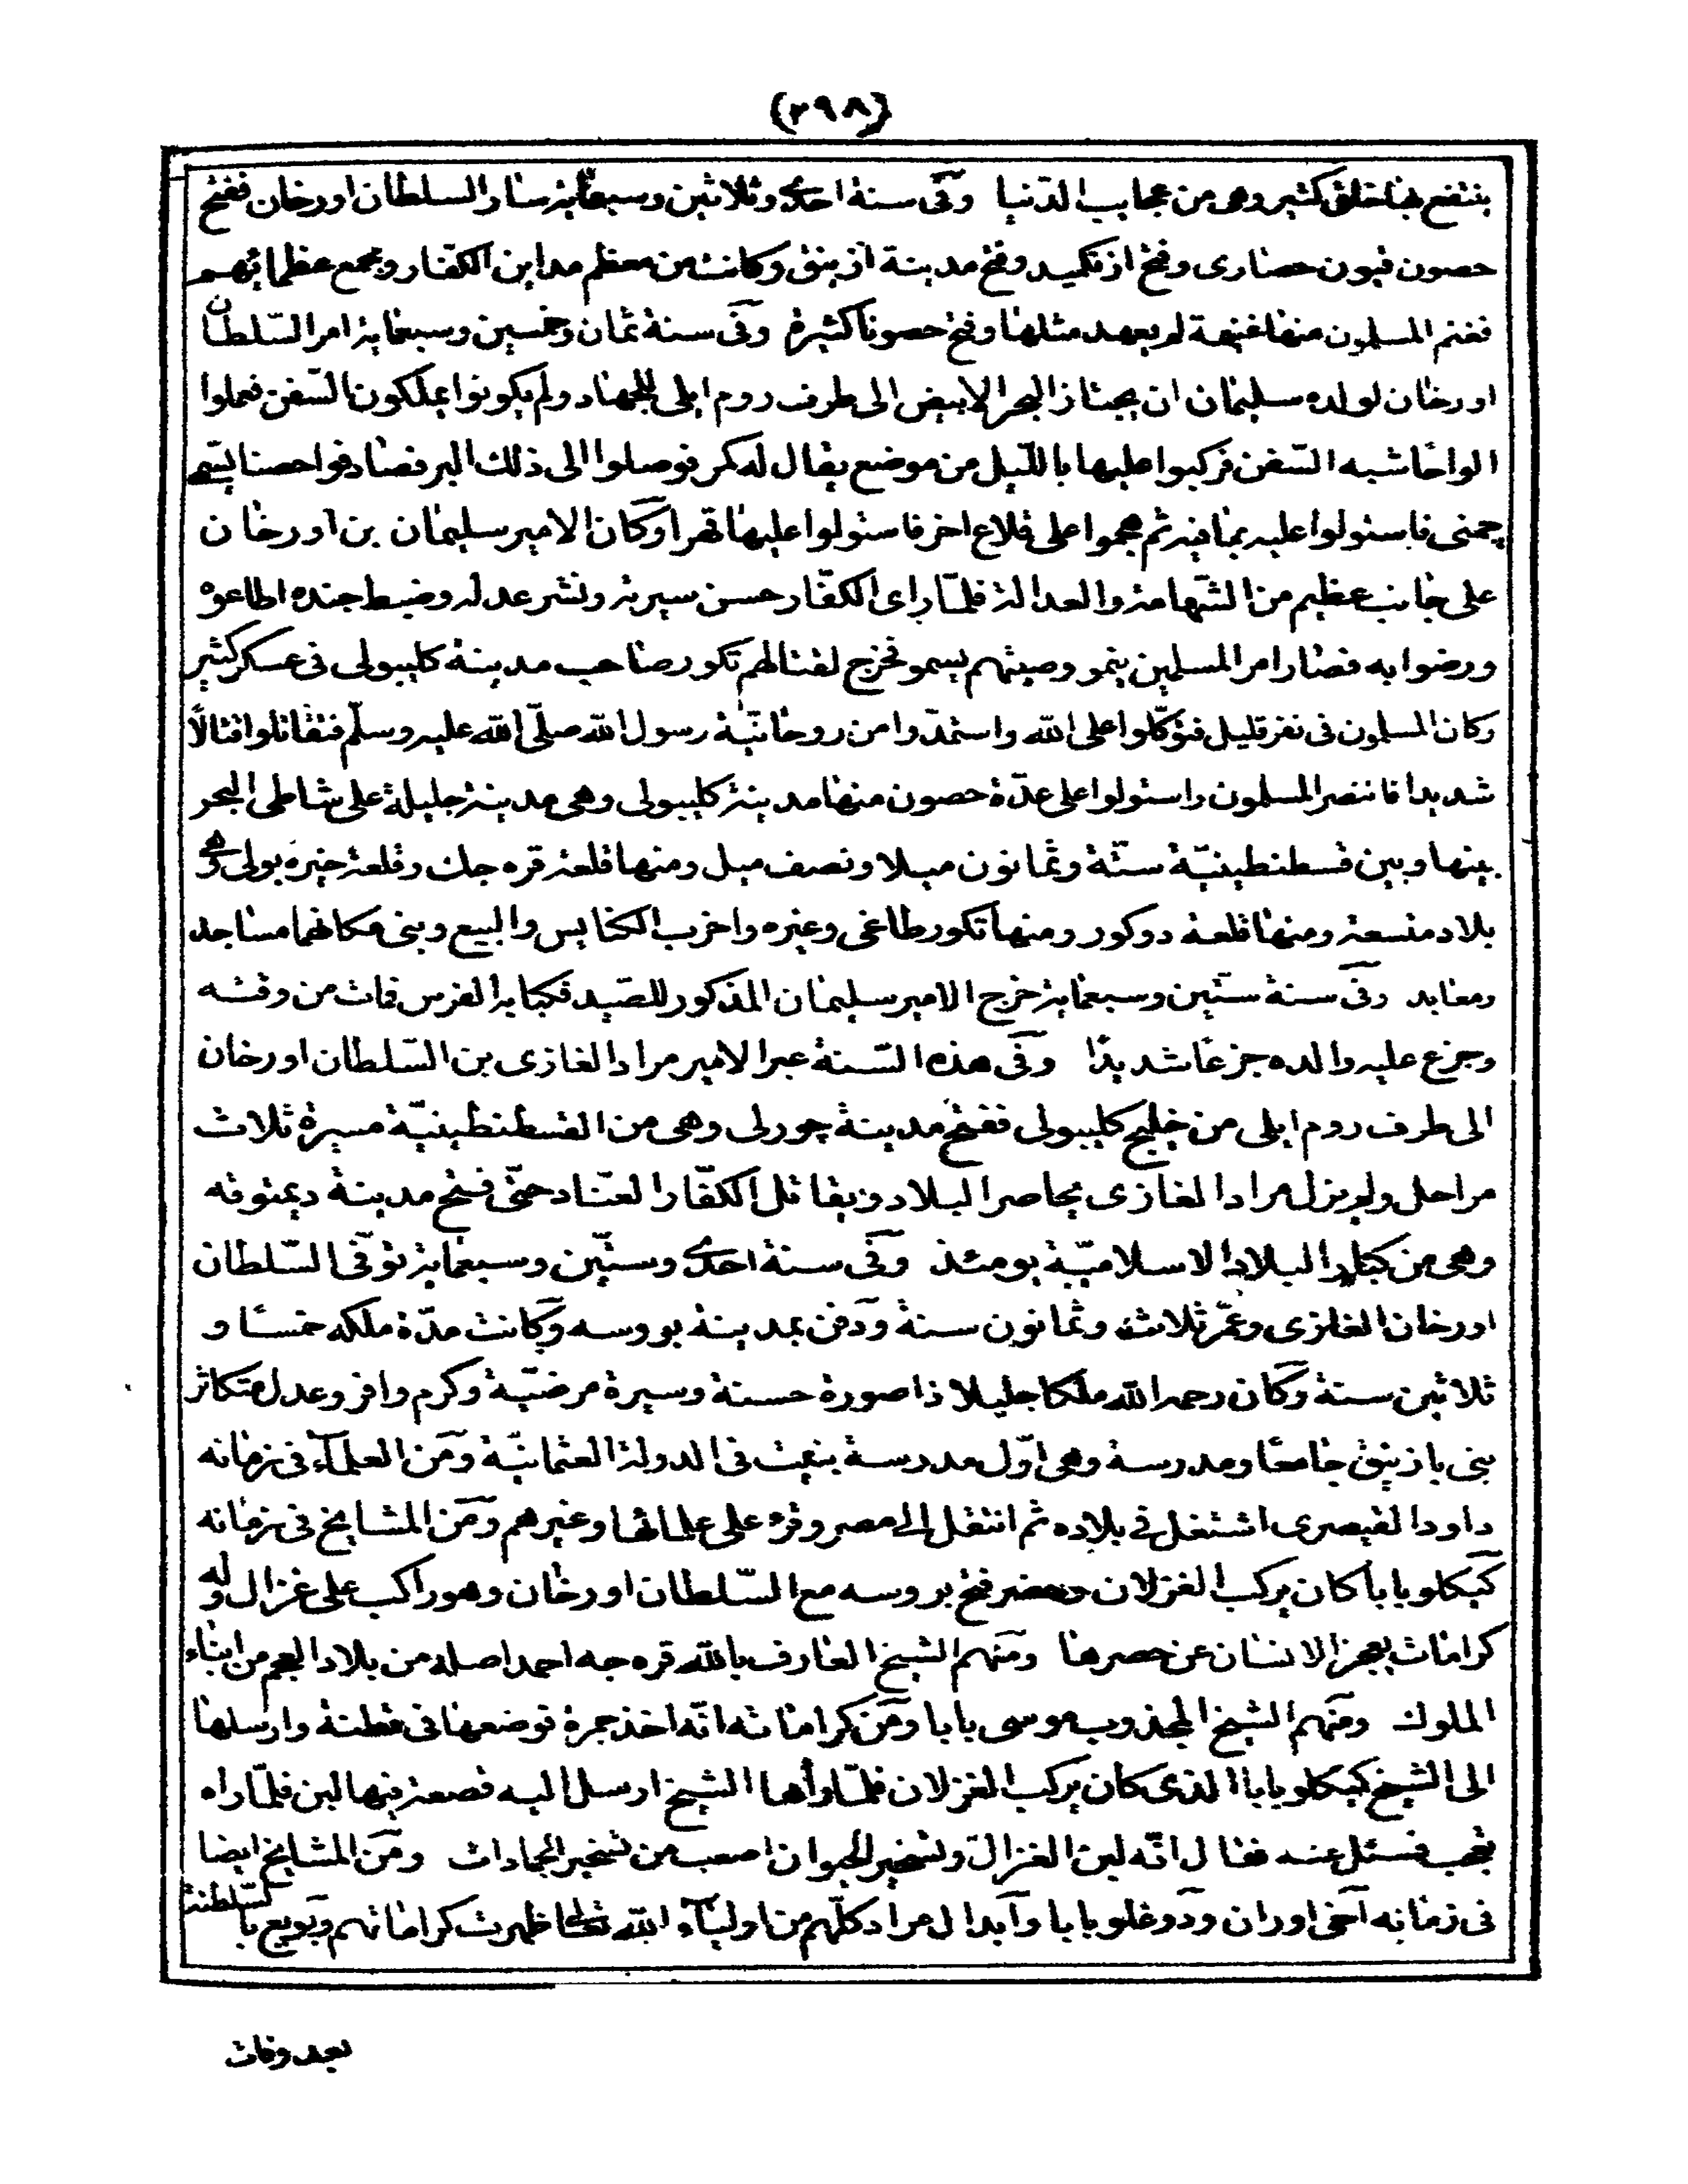 (٢٩٨)
ينتفع بها خلق كثير وهى من عجايب الدنيا وفى سنة احدى وثلاثين وسبعماية سار السلطان اورخان ففتح
حصون قيون حصارى وفتح ازنكميد وفتح مدينة ازنيق وكانت من معظم مداين الكفار ومجمع عظمائهم
فغنم المسلمون منها غنيمة لم يعهد مثلها وفتح حصونا كثيرة وفى سنة ثمان وخمسين وسبعماية امر السّلطان
اورخان لولده سليمان ان يجتاز البحر الابيض الى طرف روم ايلى للجهاد ولم يكونوا يملكون السّفن فعملوا
الواحا شبه السّفن فركبوا عليها بالليل من موضع يقال له كمر فوصلوا الى ذلك البر فصادفوا حصنا يسمى
چمنى فاستولوا عليه بما فيه ثم هجموا على قلاع اخر فاستولوا عليها قهرا وكان الامير سليمان بن اورخان
على جانب عظيم من الشّهامة والعدالة فلمّا راى الكفّار حسن سيرته ونشر عدله وضبط جنده اطاعوه
ورضوا به فصار امر المسلمين ينمو وصيتهم يسمو فخرج لقتالهم تكور صاحب مدينة كليبولى فى عسكر كثير
وكان المسلمون فى نفر قليل فتوكّلوا على الله واستمدّوا من روحانيّة رسول الله صلّى الله عليه وسلّم فتقاتلوا قتالًا
شديدا فانتصر المسلمون واستولوا على عدّة حصون منها مدينة كليبولى وهى مدينة جليلة على شاطى البحر
بينها وبين قسطنطينيّة ستّة وثمانون ميلا ونصف ميل ومنها قلعة قره جك وقلعة خيره بولى وهى
بلاد متسعة ومنها قلعة دوكور ومنها تكور طاغى وغيره واخرب الكنايس والبيع وبنى مكانها مساجد
ومعابد وفى سنة ستّين وسبعماية خرج الامير سليمان المذكور للصّيد فكبا به الفرس فمات من وقته
وجزع عليه والده جزعًا شديدًا وفى هذه السّنة عبر الامير مراد الغازى بن السّلطان اورخان
الى طرف روم ايلى من خليج كليبولى ففتح مدينة چورلى وهى من القسطنطينيّة مسيرة ثلاث
مراحل ولم يزل مراد الغازى يحاصر البلاد ويقاتل الكفّار العتاد حتّى فتح مدينة ديمتوقه
وهى من كبار البلاد الاسلاميّة يومئذ وفى سنة احدى وستّين وسبعماية توفّى السّلطان
اورخان الغازى وعمّر ثلاث وثمانون سنة ودفن بمدينة بروسه وكانت مدّة ملكه خمسًا و
ثلاثين سنة وكان رحمه الله ملكا جليلا ذا صورة حسنة وسيرة مرضيّة وكرم وافر وعدل متكاثر
بنى بازنيق جامعًا ومدرسة وهى اوّل مدرسة بنيت فى الدولة العثمانيّة ومن العلمآء فى زمانه
داود القيصرى اشتغل فى بلاده ثم انتقل الى مصر وقرء على علمائها وغيرهم ومن المشايخ فى زمانه
كيكلو بابا كان يركب الغزلان وحضر فتح بروسه مع السّلطان اورخان وهو راكب على غزال وله
كرامات يعجز الانسان عن حصرها ومنهم الشيخ العارف بالله قره جه احمد اصله من بلاد العجم من ابناء
الملوك ومنهم الشيخ المجذوب موسى بابا ومن كراماته انّه اخذ جمرة فوضعها فى قطنة وارسلها
الى الشيخ كيكلو بابا الذى كان يركب الغزلان فلمّا رأها الشيخ ارسل اليه قصعة فيها لبن فلمّا راه
تعجب فسئل عنه فقال انّه لبن الغزال وتسخير الحيوان اصعب من تسخير الجمادات ومن المشايخ ايضا
فى زمانه آخى اوران ودوغلو بابا وآبدال مراد كلّهم من اوليآء الله تعالى ظهرت كراماتهم وبويع بالسّلطنة
بعد وفات